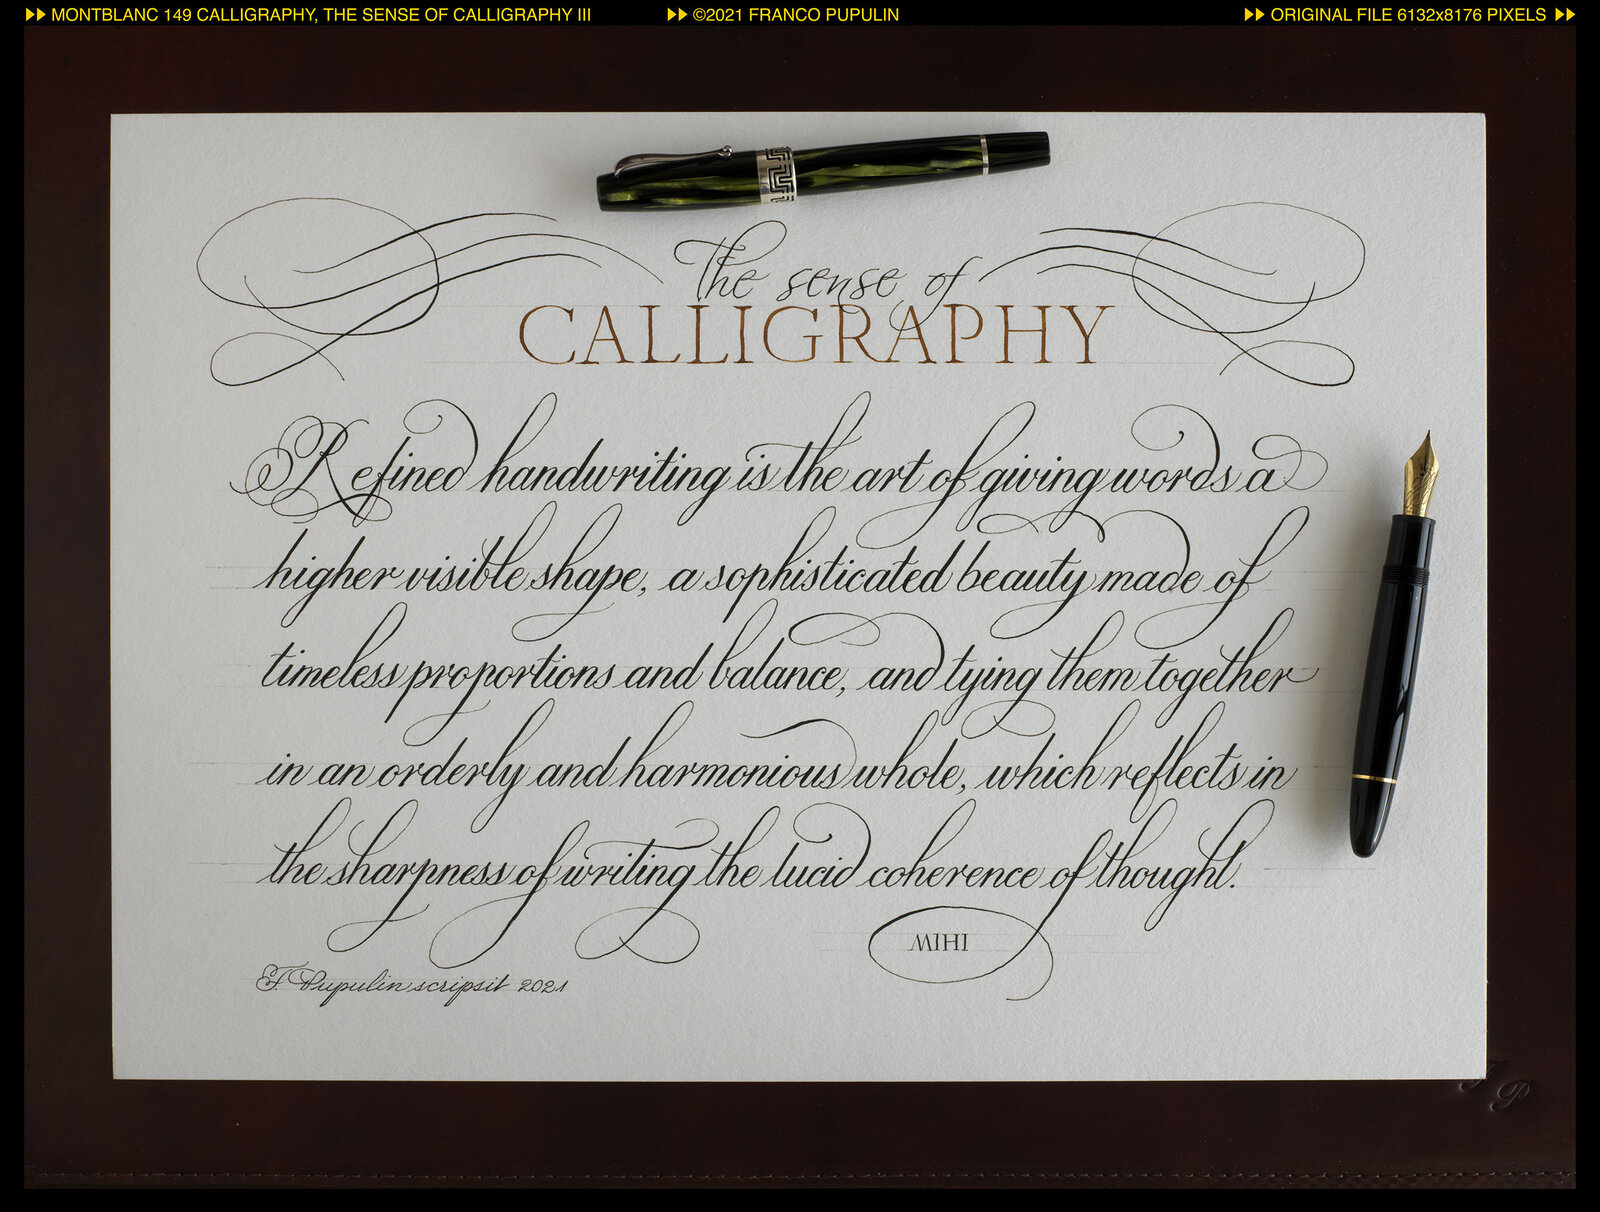 ▶▶ MONTBLANC 149 CALLIGRAPHY, THE SENSE OF CALLIGRAPHY III ▶▶ ©2021 FRANCO PUPULIN ▶▶ ORIGINAL FILE 6132x8176 PIXELS ▶▶
The sense of
CALLIGRAPHY
Refined handwriting is the art of giving words a
higher visible shape, a sophisticated beauty made of
timeless proportions and balance, and tying them together
in an orderly and harmonious whole, which reflects in
the sharpness of writing the lucid coherence of thought.
MIHI
F. Pupulin scripsit 2021
F P